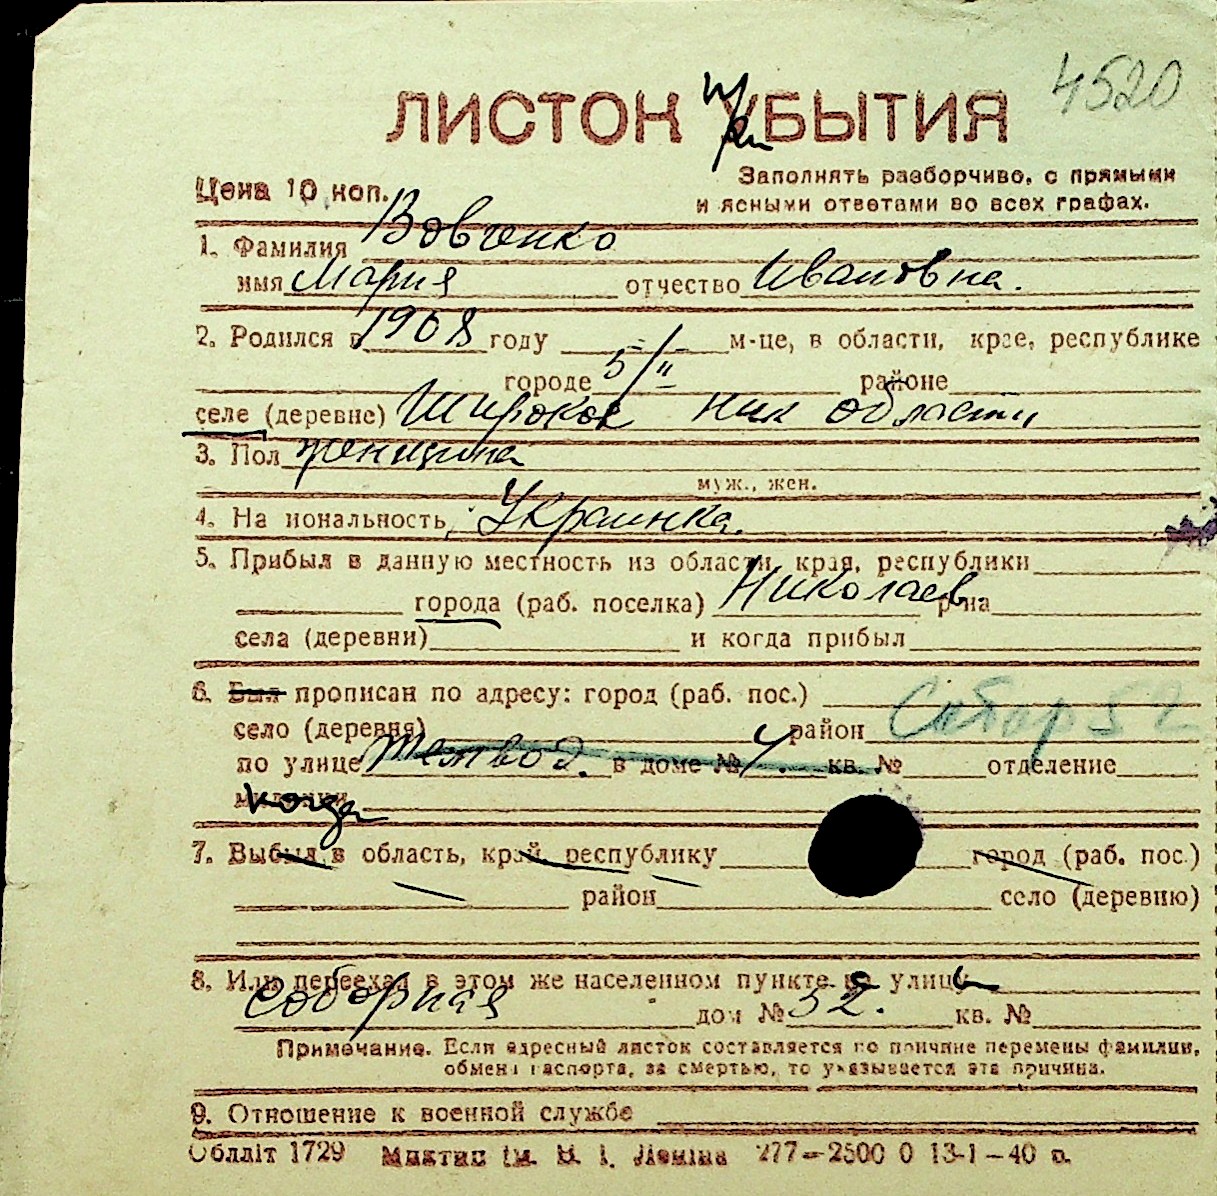 4520
ЛИСТОК УБЫТИЯ
При
Цена 10 коп.
Заполнять разборчиво, с прямыми
и ясными ответами во всех графах.
1. Фамилия Вовченко
имя Мария отчество Ивановна.
2. Родился в 1908 году м-це, в области, крае, республике
городе 5/II районе
селе (деревне) Широкое Ник области
3. Пол женщина
муж., жен.
4. На иональность Украинка.
5. Прибыл в данную местность из области, края, республики
города (раб. поселка) Николаев р-на
села (деревни) и когда прибыл
6. Был прописан по адресу: город (раб. пос.)
село (деревня) район Собор 52
по улице Темвод. в доме № 4. кв. № отделение
милиции когда
7. Выбыл в область, край, республику город (раб. пос.)
район село (деревню)
8. Или переехал в этом же населенном пункте на улицу
Соборная дом № 52. кв. №
Примечание. Если адресный листок составляется по причине перемены фамилии,
обмена паспорта, за смертью, то указывается эта причина.
9. Отношение к военной службе
Обліліт 1729 ім. В. І. Леніна 277—2500 0 13-1—40 р.